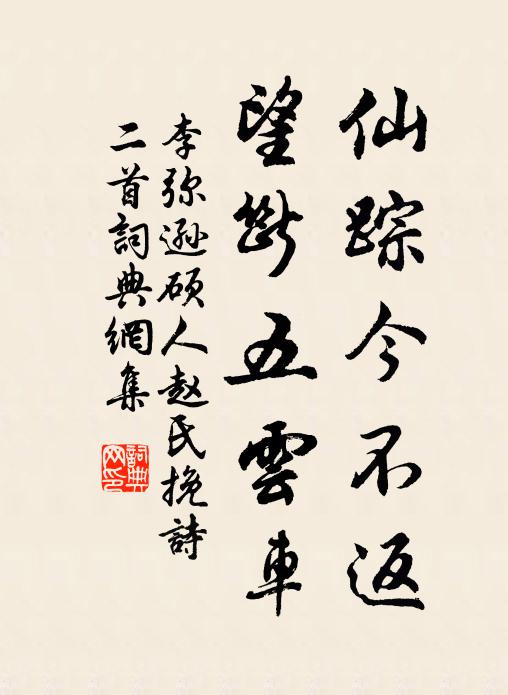 仙踪今不返
望断五雲車
李弥遜硕人赵氏挽詩
二首詞典網集
詞典
网印